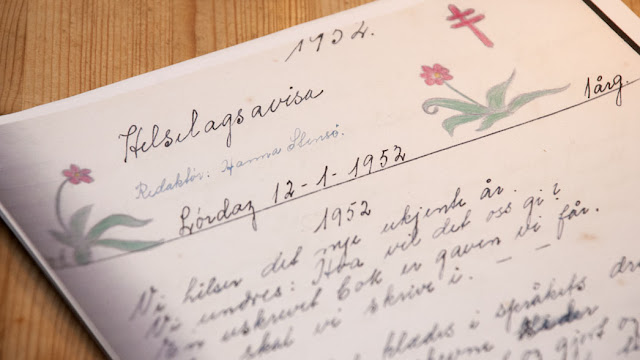 1952.
Helselagsavisa
1 årg.
Redaktør: Hanna Stensø.
Lørdag 12-1-1952
1952
Vi hilser det nye ukjente år.
Vi undres: Hva vil det oss gi?
En uskrevet bok er gaven vi får.
skal vi skrive i. – –
blades i språkets
og gjort og